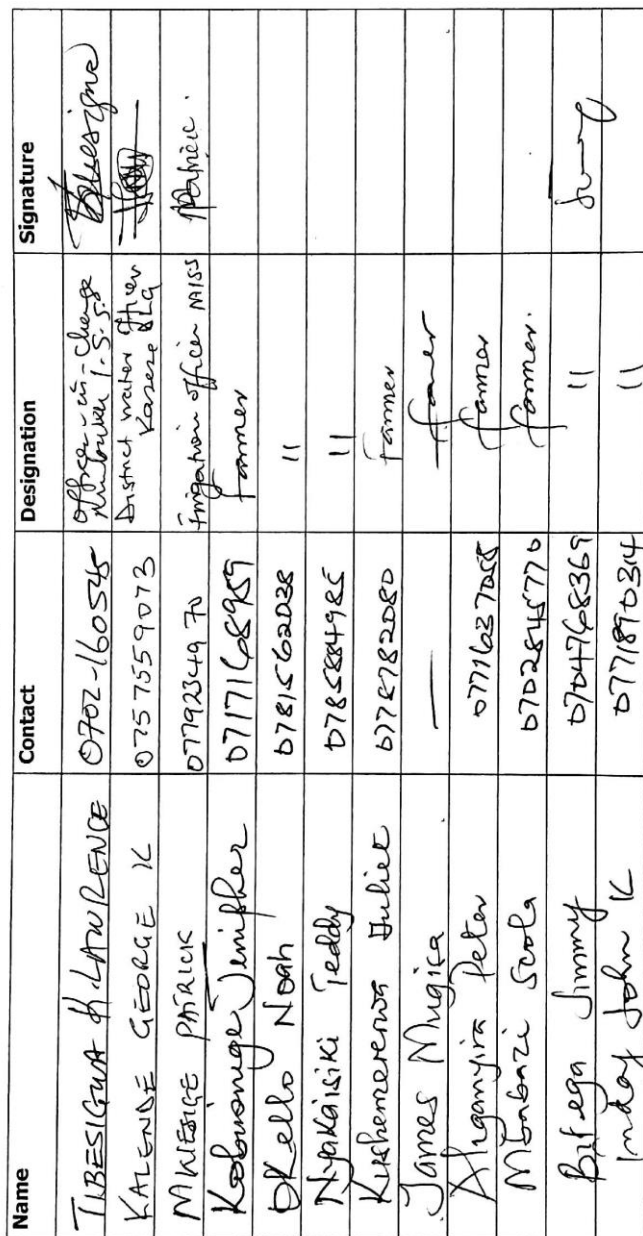 Name Contact Designation Signature
TIBESIGWA H. LAWRENCE 0702-160545 Officer-in-Charge I.S.S.
KALENDE GEORGE K 0757559073 District water officer Kasese DLG
MWESIGE PATRICK 0779234970 Irrigation officer MISS Patrick.
Kobusinge Jenipher 0717168959 Farmer
Okello Noah 0781562038 "
Nyakaisiki Teddy 0785884985 "
Kushemererwa Juliet 0778782080 Farmer
James Mugisa — farmer
Aliganyira Peter 0771637055 farmer
Mbabazi Scola 0702845770 farmer.
Bitega Jimmy 0704768369 "
Inday John K 0771890314 "